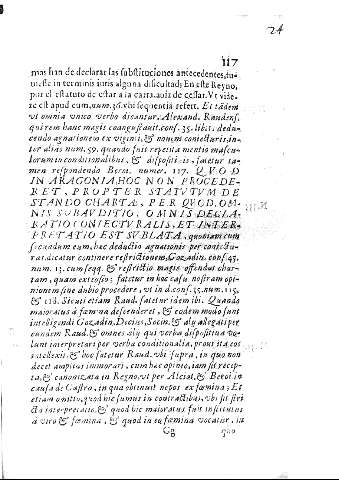 24
117
mas han de declarar las substituciones antecedentes, tu-
uiesse in terminis iuris alguna dificultad; En este Reyno,
por el estatuto de estar a la carta, auia de cessar. Vt vide-
re est apud eum, num. 36. vbi sequentia refert. Et tãdem
vt omnia vnico verbo dicantur, Alexand. Raudens.
qui rem hanc magis coangustauit, conf. 35. lib. 1. dedu-
cendo agnationem ex viginti, & nouem coniecturis, in-
ter alias num. 59. quando fuit repetita mentio mascu-
lorum in conditionalibus, & dispositiuis, fatetur ta-
men respondendo Berat. numer. 127. QVOD
IN ARAGONIA, HOC NON PROCEDE-
RET, PROPTER STATVTVM DE
STANDO CHARTÆ, PER QVOD, OM-
NIS SVBAVDITIO, OMNIS DECLA-
RATIO CONIECTVRALIS, ET INTER-
PRETATIO EST SVBLATA, quoniam cum
secundum eum, hæc deductio agnationis per coniectu-
ras, dicatur continere restrictionem, Gozadin. conf. 45.
num. 13. cum seqq. & restrictio magis offendat char-
tam, quam extensio; fatetur in hoc casu nostram opi-
nionem sine dubio procedere, vt in d. conf. 35. num. 115.
& 118. Sicuti etiam Raud. fatetur idem ibi. Quando
maioratus à fœmina descenderet, & eodem modo sunt
intelligendi Gozadin, Decius, Socin. & alij allegati per
eundem Raud. & omnes alij qui verba dispositiua vo-
lunt interpretari per verba conditionalia, prout ita eos
intellexit, & hoc fatetur Raud. vbi supra, in quo non
decet amplius immorari, cum hæc opinio, iam sit recep-
ta, & canonizata in Reyno, vt per Alciat. & Beroi in
causa de Castro, in qua obtinuit nepos ex fœmina; Et
etiam omitto, quod hic sumus in contractibus, vbi fit stri
cta interpretatio, & quod hic maioratus fuit institutus
à viro & fœmina, & quod in eo fœmina vocatur, in
Gg quo